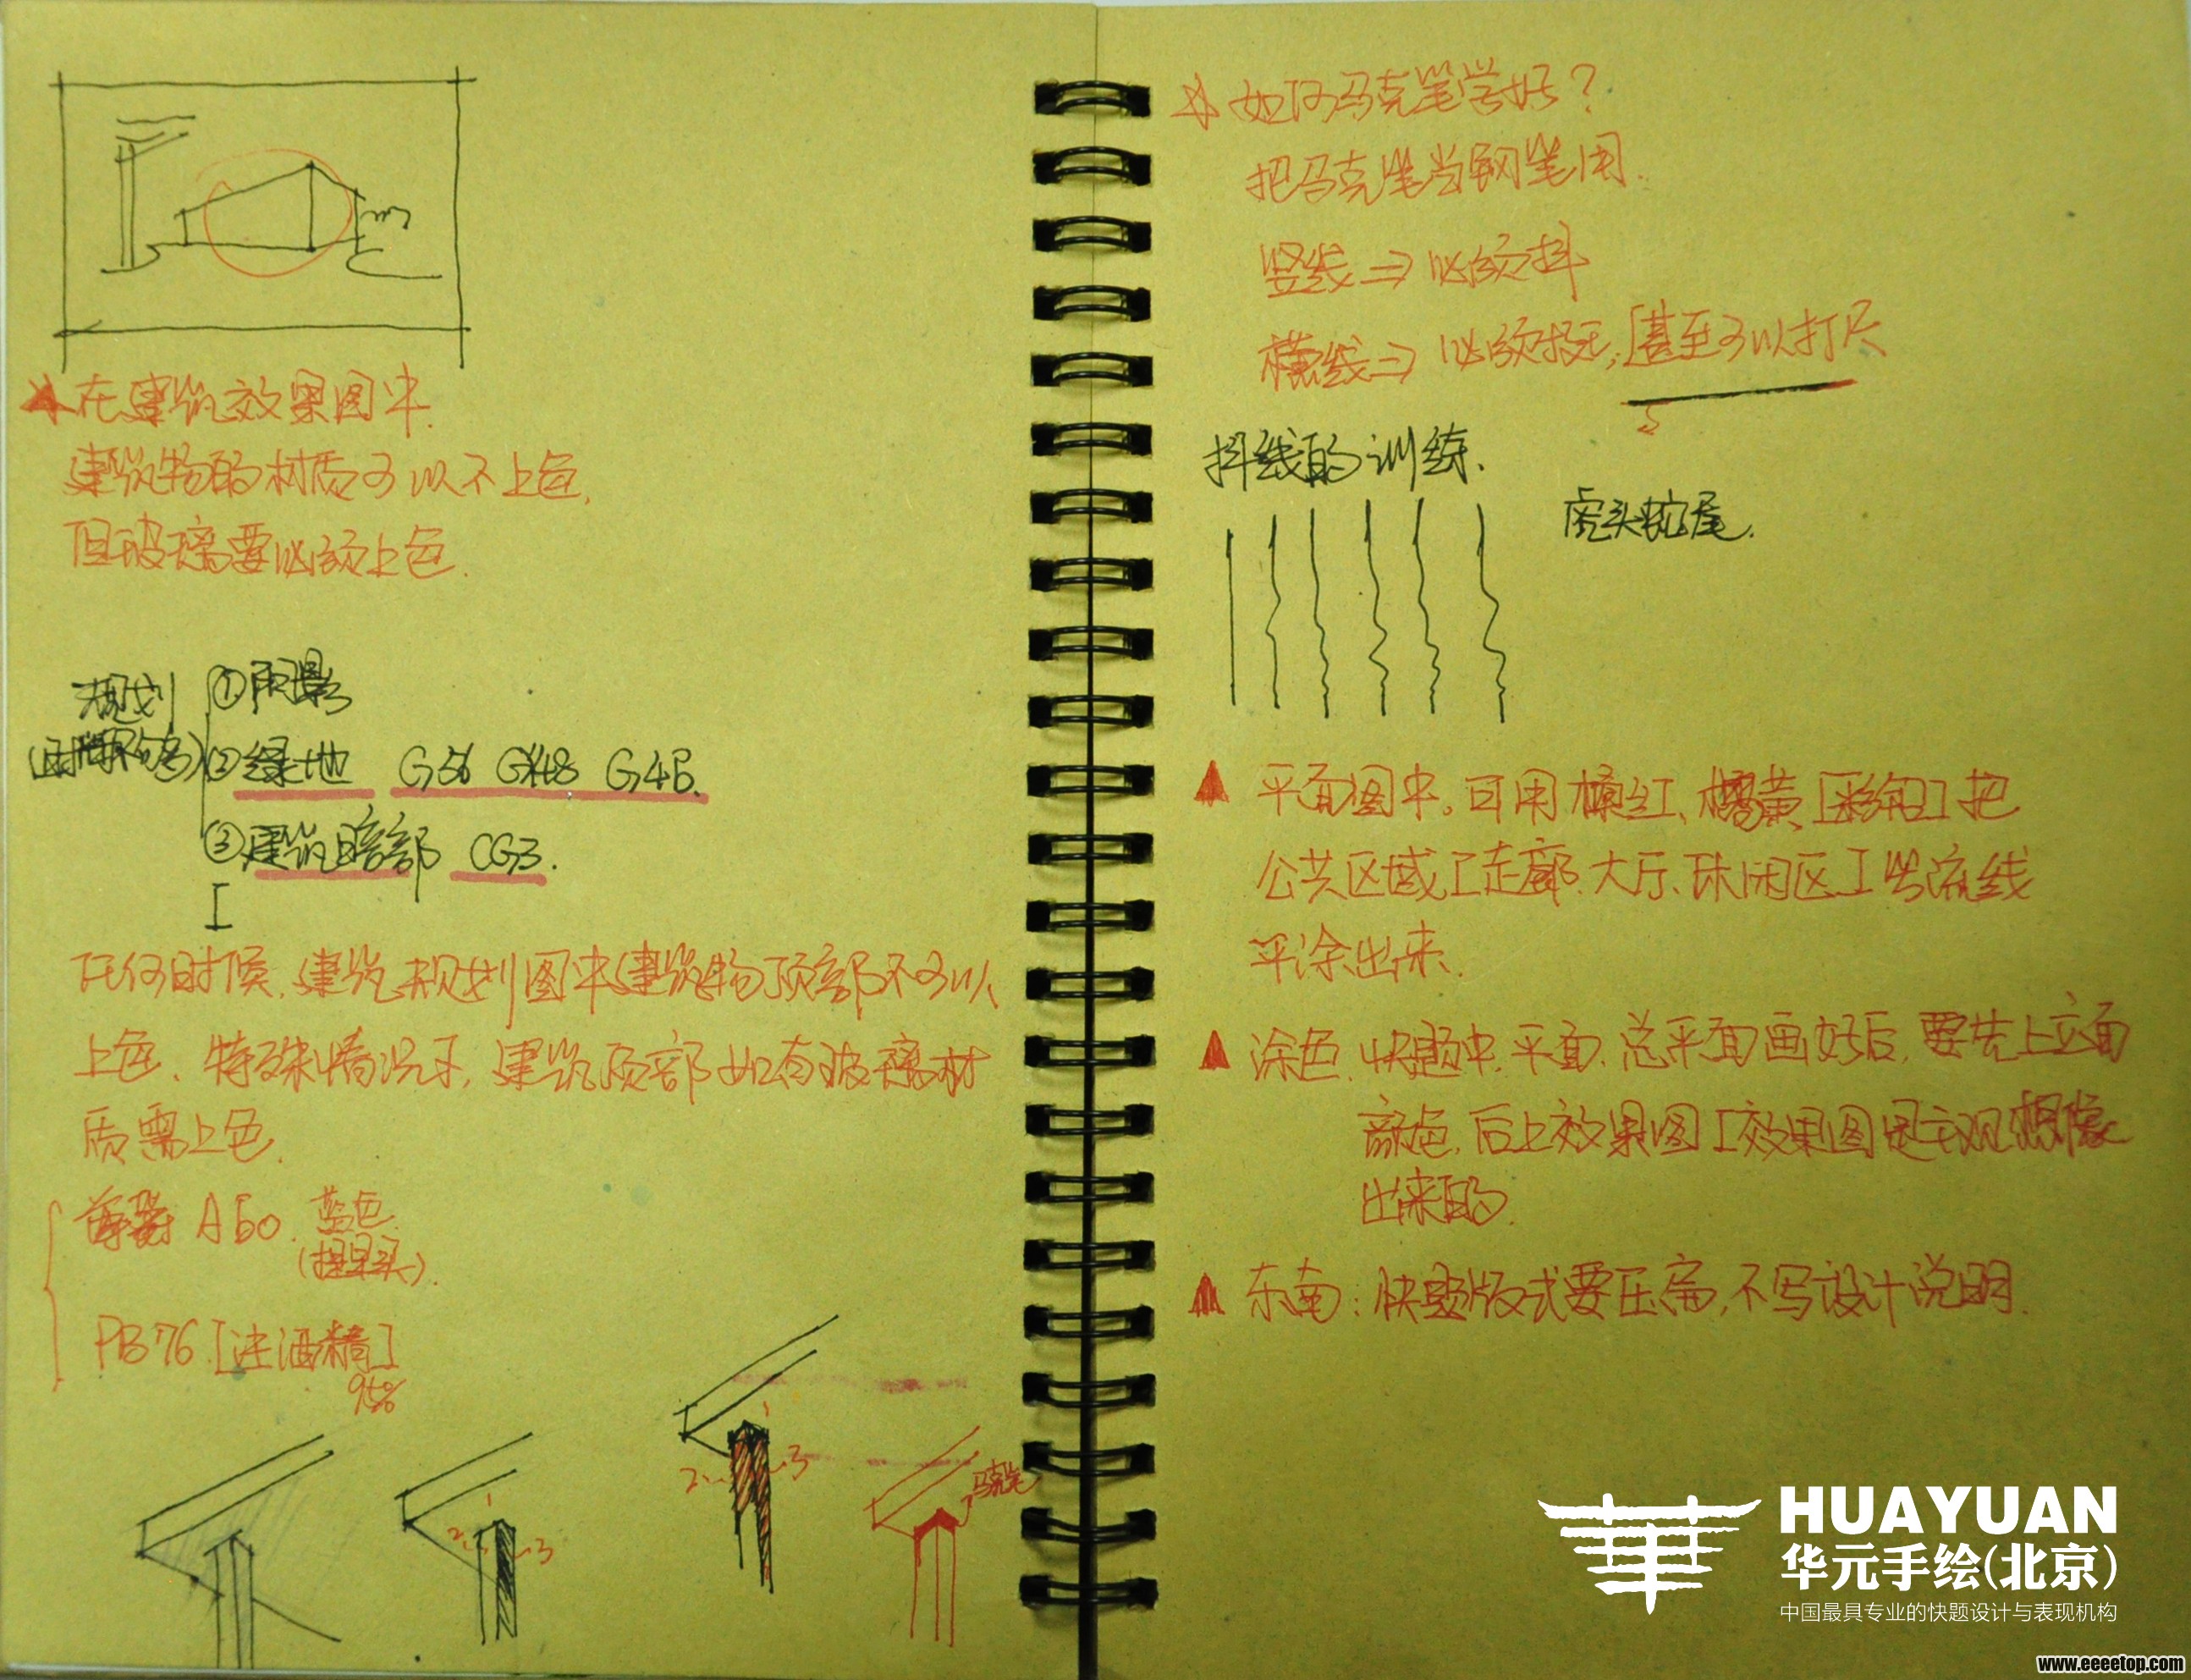 在建筑效果图中.
建筑物的材质可以不上色,
但玻璃要必须上色.
规划
(时间不够)
①阴影
②绿地 G56 G48 G46.
③建筑暗部 CG3.
任何时候,建筑规划图中建筑物顶部不可以
上色、特殊情况下,建筑顶部如有玻璃材
质需上色.
蓝色.
PB76.[注酒精]
95%
1
2
3
2
3
1
马克笔
如何马克笔学好?
把马克笔当钢笔用.
竖线⇒必须抖
横线⇒必须挺,[甚至可以打尺
抖线的训练.
虎头蛇尾.
平面图中,可用橘红、橘黄[彩铅]把
公共区域[走廊、大厅、休闲区]出流线
平涂出来.
涂色.快题中.平面.总平面画好后,要先上立面
颜色,后上效果图[效果图是主观想像
出来的.
东南:快题版式要压扁,不写设计说明.
HUAYUAN
华元手绘(北京)
中国最具专业的快题设计与表现机构
www.eeeetop.com